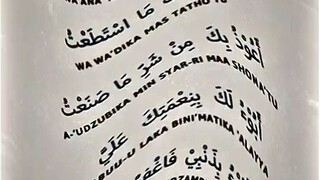 مَا اسْتَطَعْتُ
WA WA'DIKA MAS TATHO'TU
أَعُوْذُ بِكَ مِنْ شَرِّ مَا صَنَعْتُ
A-'UDZUBIKA MIN SYAR-RI MAA SHONA'TU
أَبُوْءُ لَكَ بِنِعْمَتِكَ عَلَيَّ
BUU-U LAKA BINI'MATIKA 'ALAYYA
بِذَنْبِيْ